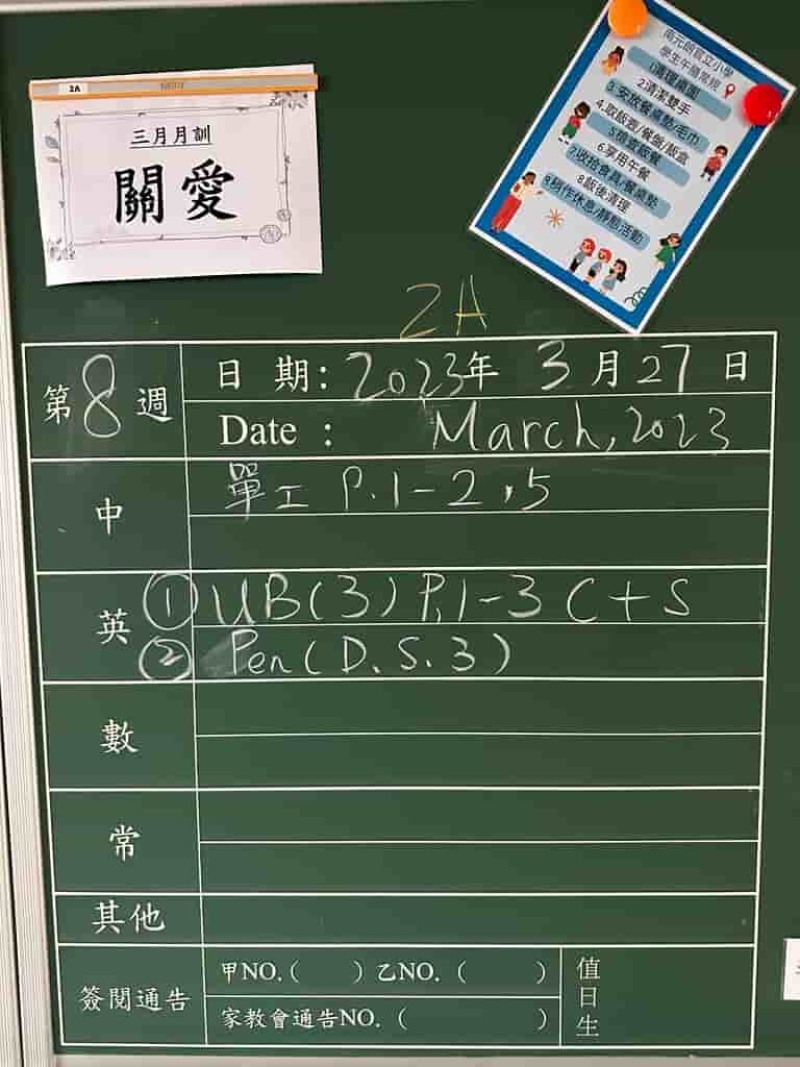 2A
三月月訓
關愛
南元朗官立小學
學生午膳常規
1清理桌面
2清潔雙手
3.安放餐桌墊/毛巾
4.取飯壺/餐盤/飯盒
6.享用午餐
7.收拾食具/餐桌墊
8.飯後清理
休息/靜態活動
2A
第8週
日 期: 2023年 3月27日
Date : March, 2023
中
單工 P.1-2,5
英
① UB(3) P.1-3 C+S
② Pen(D.S.3)
數
常
其他
簽閱通告
甲NO.( ) 乙NO. ( )
家教會通告NO. ( )
值日生